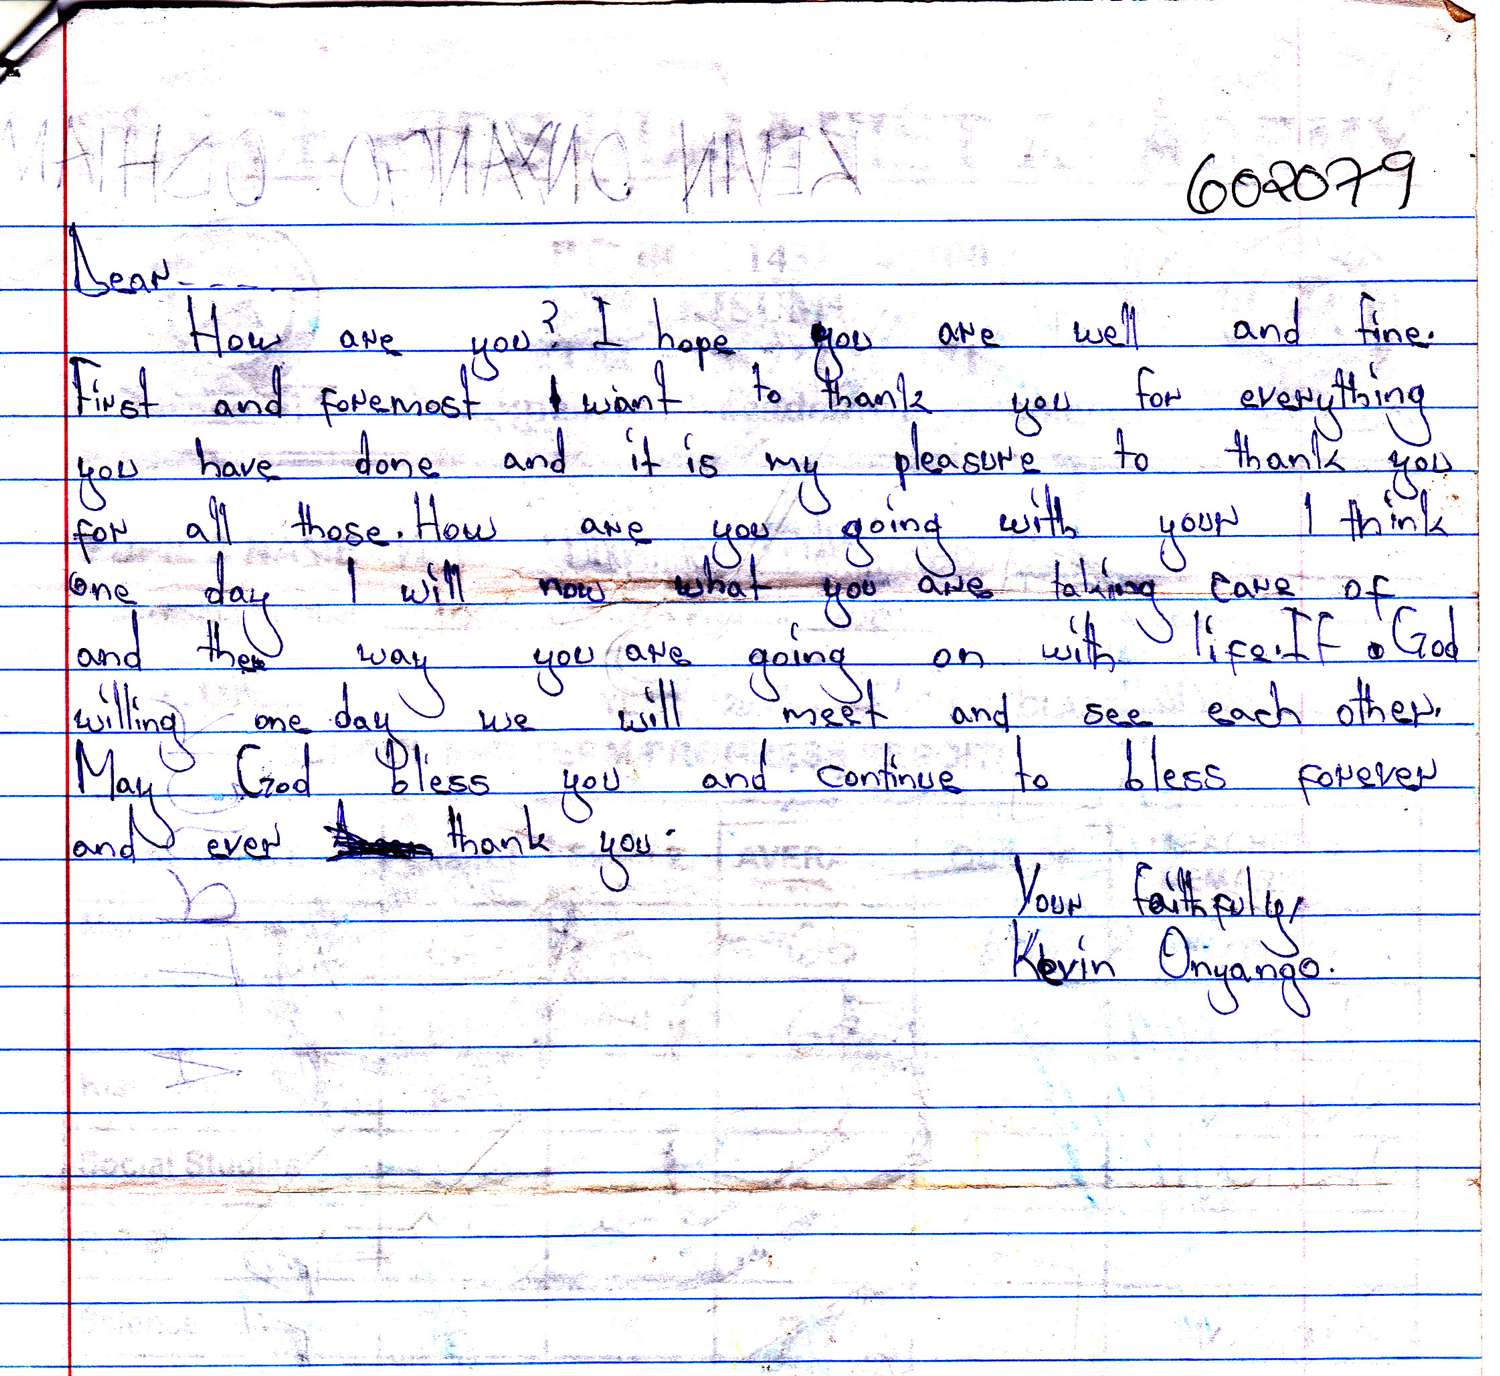 602079
Dear----
How are you? I hope you are well and fine.
First and foremost I want to thank you for everything
you have done and it is my pleasure to thank you
for all those. How are you going with your I think
one day I will now what you are taking care of
and the way you are going on with life. If God
willing one day we will meet and see each other.
May God bless you and continue to bless forever
and ever thank you.
Your faithfully,
Kevin Onyango.